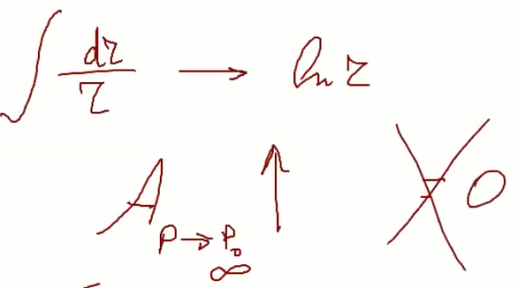 ∫ dz/z → ln z
A P → P₀ ↑ ≠ 0
∞